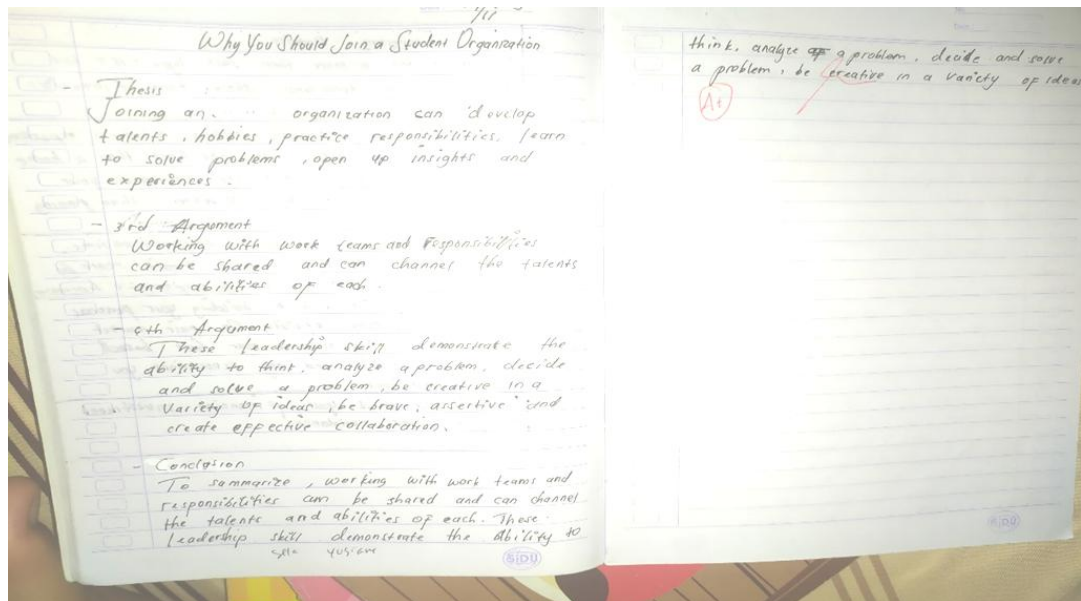 Why You Should Join a Student Organization
- Thesis
Joining an organization can develop
talents, hobbies, practice responsibilities, learn
to solve problems, open up insights and
experiences.
- 3rd Argument
Working with work teams and responsibilities
can be shared and can channel the talents
and abilities of each.
- 6th Argument
These leadership skill demonstrate the
ability to think, analyze a problem, decide
and solve a problem, be creative in a
variety of ideas, be brave, assertive and
create effective collaboration.
- Conclusion
To summarize, working with work teams and
responsibilities can be shared and can channel
the talents and abilities of each. These
leadership skill demonstrate the ability to
SIDU
think, analyze a problem, decide and solve
a problem, be creative in a variety of ideas
A+
SIDU